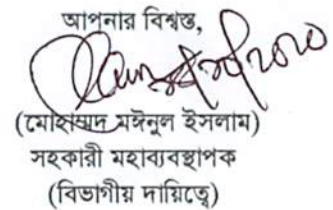 আপনার বিশ্বস্ত,
(মোহাম্মদ মঈনুল ইসলাম)
সহকারী মহাব্যবস্থাপক
(বিভাগীয় দায়িত্বে)